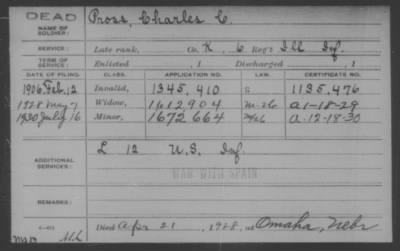 DEAD
NAME OF SOLDIER: Pross, Charles C.
SERVICE: Late rank, Co. K, 6 Reg't Ill Inf.
TERM OF SERVICE: Enlisted , 1 Discharged , 1
DATE OF FILING. CLASS. APPLICATION NO. LAW. CERTIFICATE NO.
1906 Feb. 12 Invalid, 1345,410 1135,476
1928 May 7 Widow, 1612904 M-26 a-1-18-29
1930 July 16 Minor, 1672664 M/26 a-12-18-30
ADDITIONAL SERVICES: L 12 U.S. Inf.
WAR WITH SPAIN
REMARKS:
Died Apr 21, 1928, at Omaha, Nebr